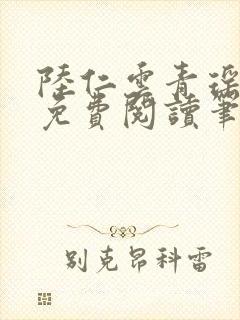 陸仁雲青瑤
免費閱讀筆
別克昂科雷